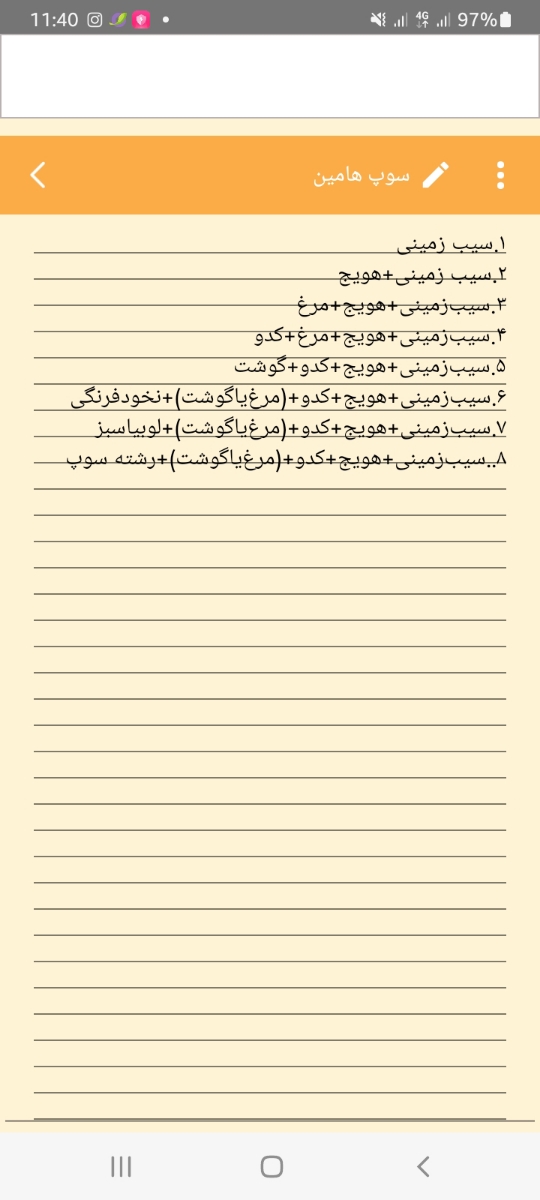 11:40
4G
97%
سوپ هامین
۱.سیب زمینی
۲.سیب زمینی+هویج
۳.سیب‌زمینی+هویج+مرغ
۴.سیب‌زمینی+هویج+مرغ+کدو
۵.سیب‌زمینی+هویج+کدو+گوشت
۶.سیب‌زمینی+هویج+کدو+(مرغ‌یاگوشت)+نخودفرنگی
۷.سیب‌زمینی+هویج+کدو+(مرغ‌یاگوشت)+لوبیاسبز
۸..سیب‌زمینی+هویج+کدو+(مرغ‌یاگوشت)+رشته سوپ